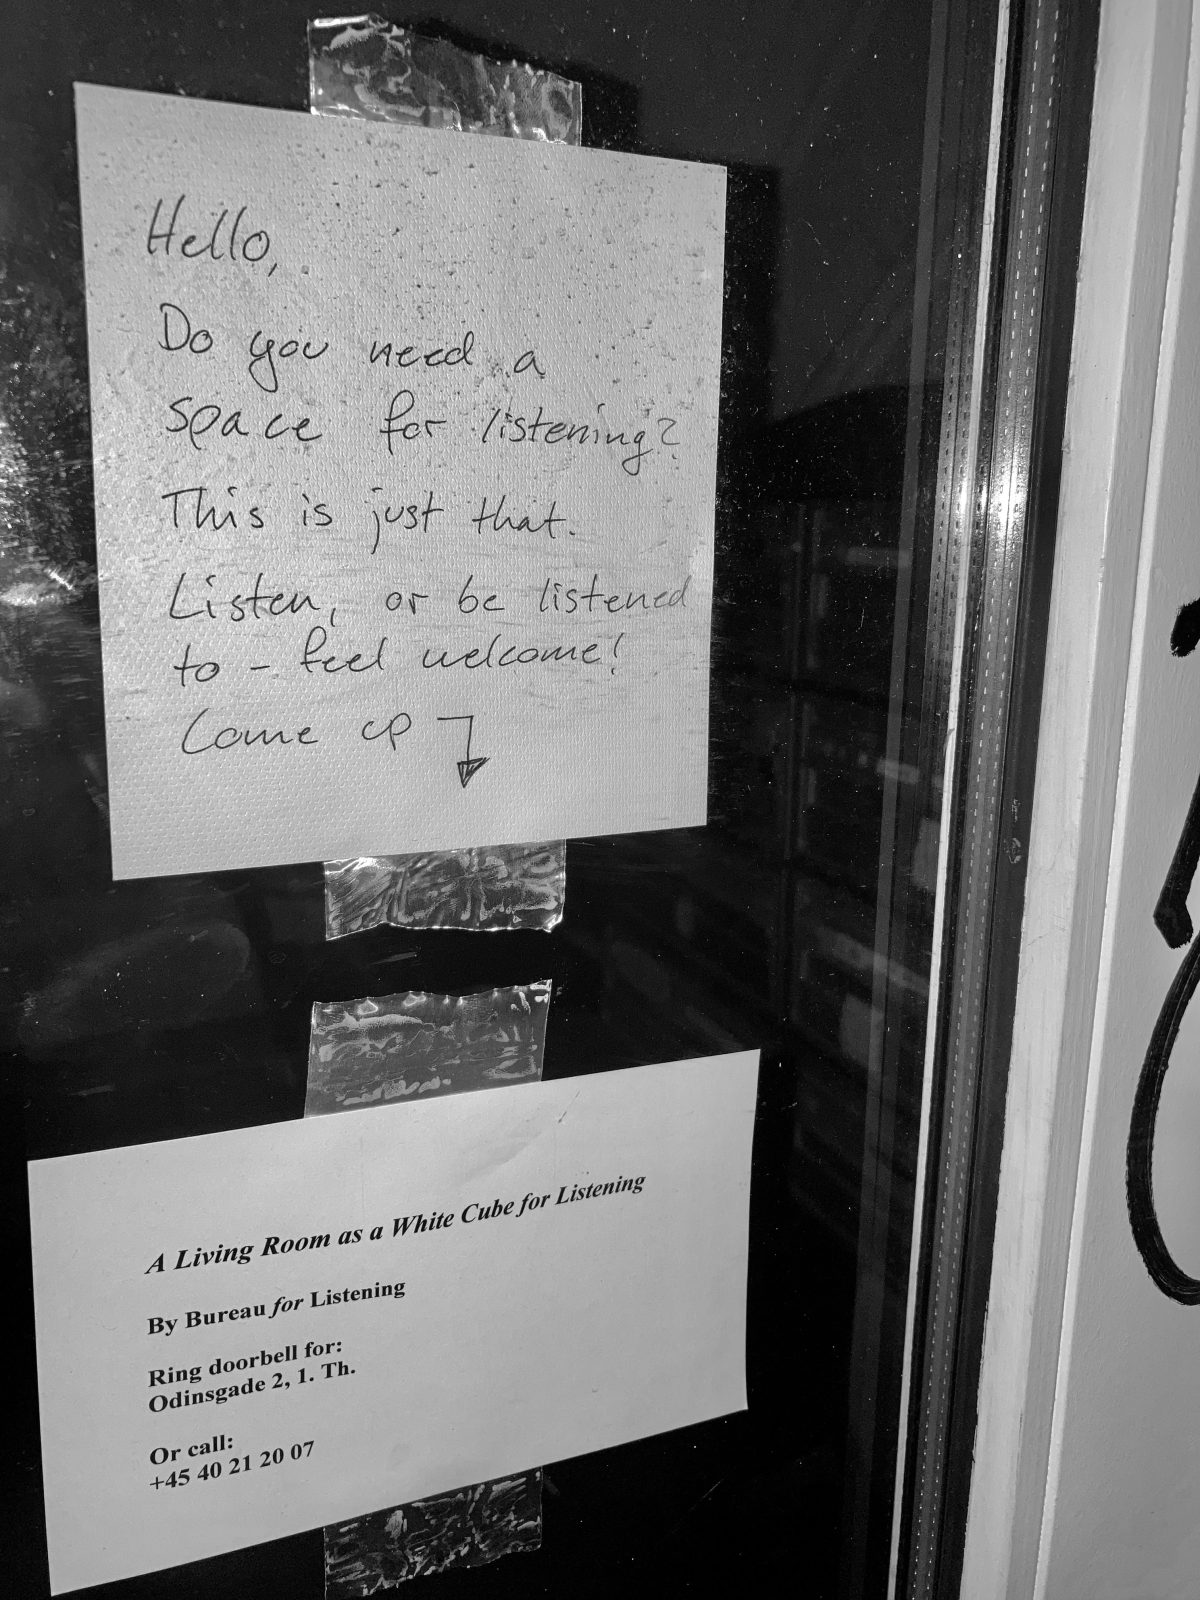 Hello,
Do you need a
space for listening?
This is just that.
Listen, or be listened
to - feel welcome!
Come up
A Living Room as a White Cube for Listening
By Bureau for Listening
Ring doorbell for:
Odinsgade 2, 1. Th.
Or call:
+45 40 21 20 07